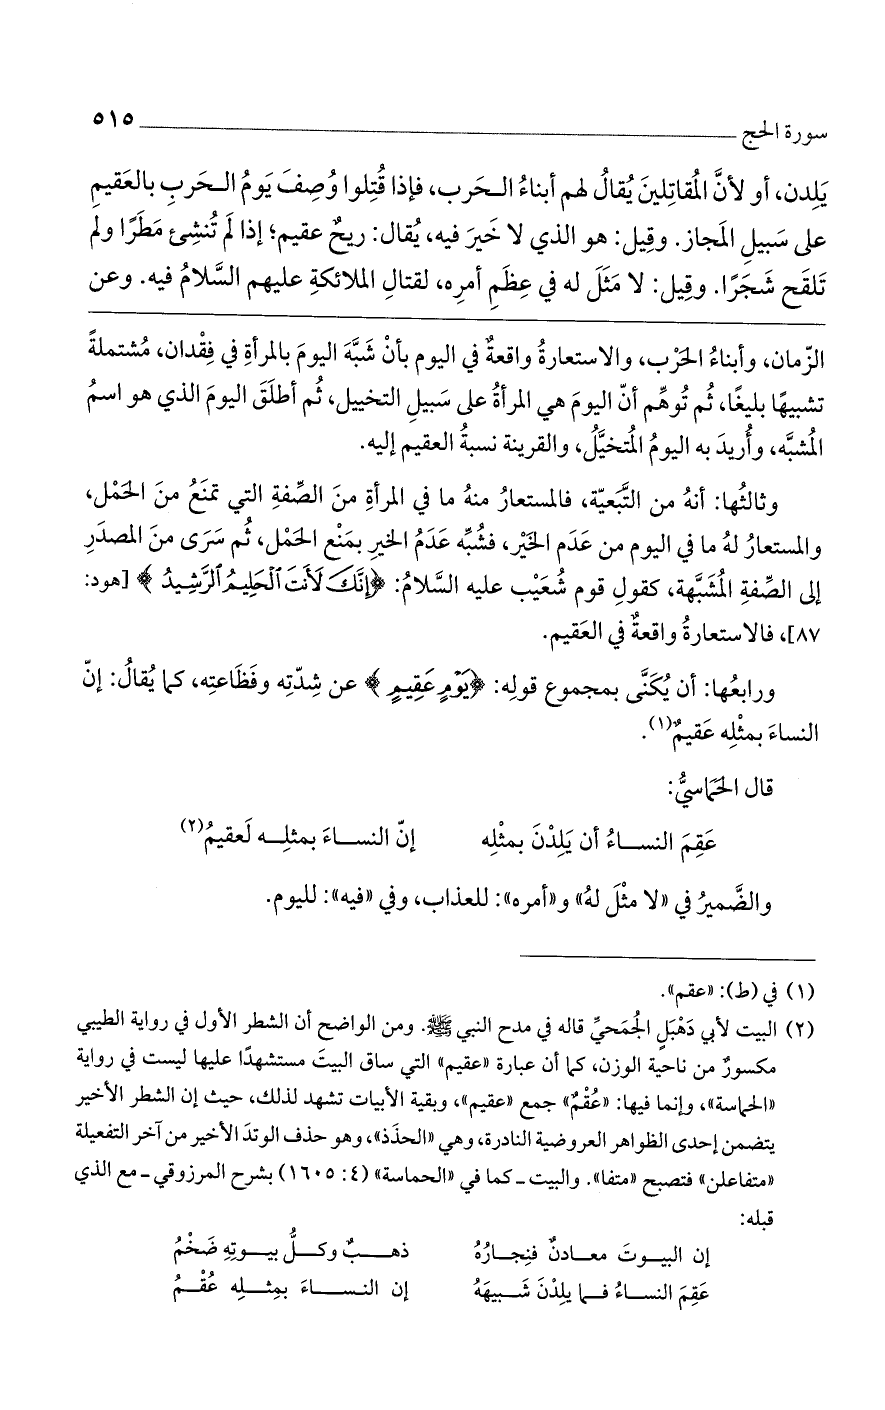 سورة الحج ٥١٥
يَلِدن، أو لأنَّ المُقاتِلينَ يُقالُ لهم أبناءُ الـحَرب، فإذا قُتِلوا وُصِفَ يَومُ الـحَربِ بالعَقيمِ
على سَبيلِ المَجاز. وقِيل: هو الذي لا خَيرَ فيه، يُقال: ريحٌ عقيم؛ إذا لَم تُنشِئ مَطَرًا ولم
تَلقَح شَجَرًا. وقِيل: لا مَثَلَ له في عِظَمِ أمرِه، لقتالِ الملائكةِ عليهم السَّلامُ فيه. وعن
الزّمان، وأبناءُ الحَرْب، والاستعارةُ واقعةٌ في اليوم بأنْ شَبَّهَ اليومَ بالمرأةِ في فِقْدان، مُشتملةً
تشبيهًا بليغًا، ثُم تُوهِّم أنّ اليومَ هي المرأةُ على سَبيلِ التخييل، ثُم أطلَقَ اليومَ الذي هو اسمُ
المُشبَّه، وأُريدَ به اليومُ المُتخيَّلُ، والقرينة نسبةُ العقيم إليه.
وثالثُها: أنهُ من التَّبَعيّة، فالمستعارُ منهُ ما في المرأةِ منَ الصِّفةِ التي تمنَعُ منَ الحَمْل،
والمستعارُ لهُ ما في اليوم من عَدَم الخَيْر، فشُبِّه عَدَمُ الخيرِ بمَنْع الحَمْل، ثُم سَرَى منَ المصدَرِ
إلى الصِّفةِ المُشَبَّهة، كقولِ قوم شُعَيْب عليه السَّلامُ: ﴿إِنَّكَ لَأَنتَ ٱلْحَلِيمُ ٱلرَّشِيدُ﴾ [هود:
٨٧]، فالاستعارةُ واقعةٌ في العَقيم.
ورابعُها: أن يُكَنَّى بمجموع قولِه: ﴿يَوْمٍ عَقِيمٍ﴾ عن شِدّتِه وفَظَاعتِه، كما يُقالُ: إنّ
النساءَ بمثْلِه عَقيمٌ(١).
قال الحَمَاسيُّ:
عَقِمَ النســاءُ أن يَلِدْنَ بمثْلِه إنّ النســاءَ بمثلِــه لَعقيمُ(٢)
والضَّميرُ في «لا مثْلَ لهُ» و«أمره»: للعذاب، وفي «فيه»: لليوم.
(١) في (ط): «عقم».
(٢) البيت لأبي دَهْبَلٍ الجُمَحيِّ قاله في مدح النبي ﷺ. ومن الواضح أن الشطر الأول في رواية الطيبي
مكسورٌ من ناحية الوزن، كما أن عبارة «عقيم» التي ساق البيتَ مستشهدًا عليها ليست في رواية
«الحماسة»، وإنما فيها: «عُقْمٌ» جمع «عقيم»، وبقية الأبيات تشهد لذلك، حيث إن الشطر الأخير
يتضمن إحدى الظواهر العروضية النادرة، وهي «الحذَذ»، وهو حذف الوتدَ الأخير من آخر التفعيلة
«متفاعلن» فتصبح «متفا». والبيت ـ كما في «الحماسة» (٤: ١٦٠٥) بشرح المرزوقي ـ مع الذي
قبله:
إن البيــوتَ معــادنٌ فنِجــارُهُ ذهــــبٌ وكــلُّ بيــوتِهِ ضَخْمُ
عَقِمَ النســاءُ فــما يلِدْنَ شَــبيهَهُ إن النـــســـاءَ بمِثلِــه عُقْــمُ